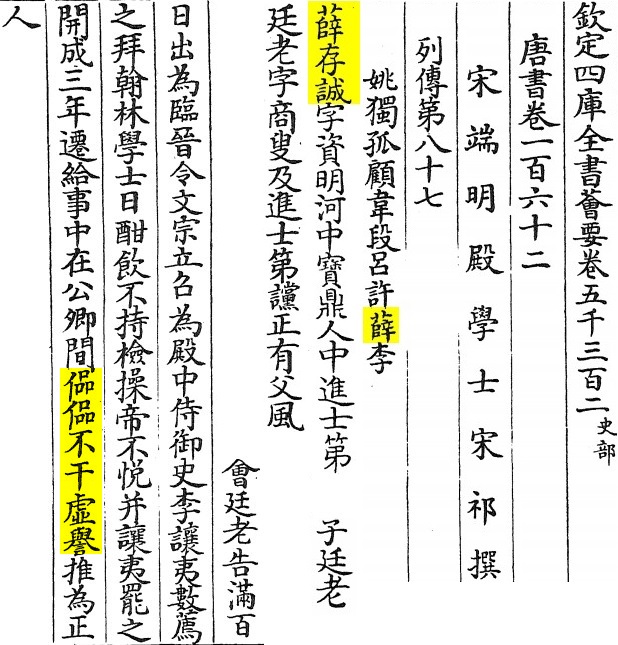 欽定四庫全書薈要卷五千三百二 史部
唐書卷一百六十二
宋端明殿學士宋祁撰
列傳第八十七
姚獨孤顧韋段呂許薛李
薛存誠字資明河中寶鼎人中進士第 子廷老
廷老字商叟及進士第讜正有父風
會廷老告滿百
日出為臨晉令文宗立召為殿中侍御史李讓夷數薦
之拜翰林學士日酣飲不持檢操帝不悅并讓夷罷之
開成三年遷給事中在公卿間偘偘不干虛譽推為正
人